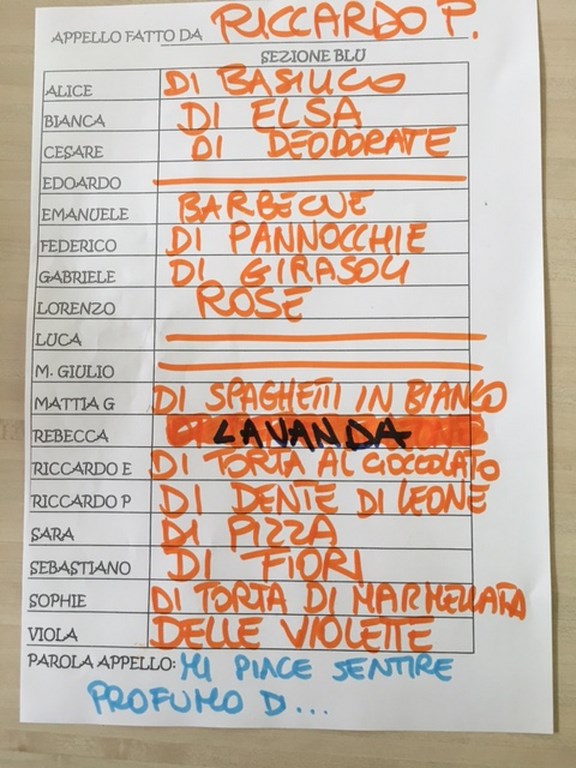 APPELLO FATTO DA RICCARDO P.
SEZIONE BLU
ALICE DI BASILICO
BIANCA DI ELSA
CESARE DI DEODORATE
EDOARDO
EMANUELE BARBECUE
FEDERICO DI PANNOCCHIE
GABRIELE DI GIRASOLI
LORENZO ROSE
LUCA
M. GIULIO
MATTIA G DI SPAGHETTI IN BIANCO
REBECCA LAVANDA
RICCARDO E DI TORTA AL CIOCCOLATO
RICCARDO P DI DENTE DI LEONE
SARA DI PIZZA
SEBASTIANO DI FIORI
SOPHIE DI TORTA DI MARMELLATA
VIOLA DELLE VIOLETTE
PAROLA APPELLO: MI PIACE SENTIRE
PROFUMO D...